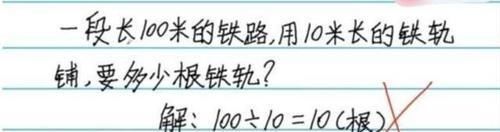 一段长100米的铁路,用10米长的铁轨
铺,要多少根铁轨?
解:100÷10=10(根)